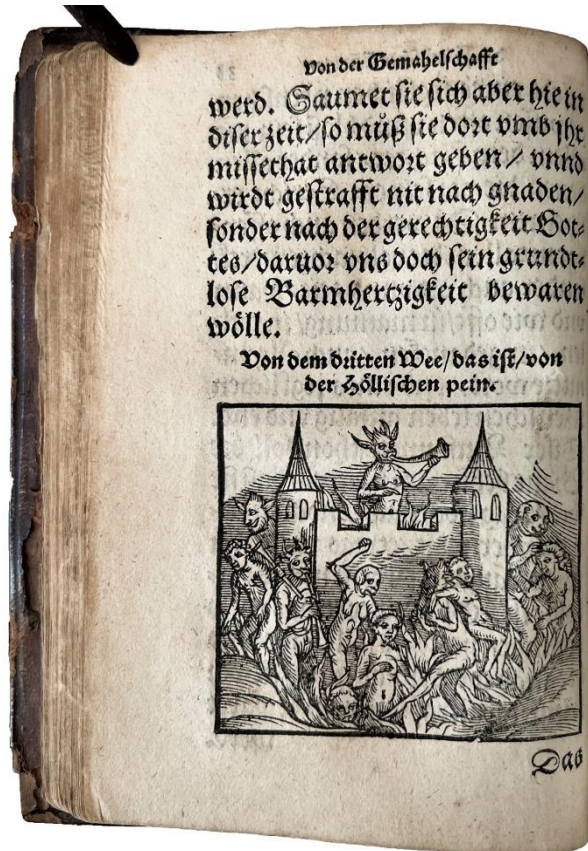 Von der Gemahelschafft
werd. Saumet sie sich aber hie in
diser zeit/so můß sie dort vmb jhr
missethat antwort geben/ vnnd
wirdt gestrafft nit nach gnaden/
sonder nach der gerechtigkeit Got⸗
tes/daruor vns doch sein grundt⸗
lose Barmhertzigkeit bewaren
wölle.
Von dem dritten Wee/das ist/von
der Höllischen pein.
Das